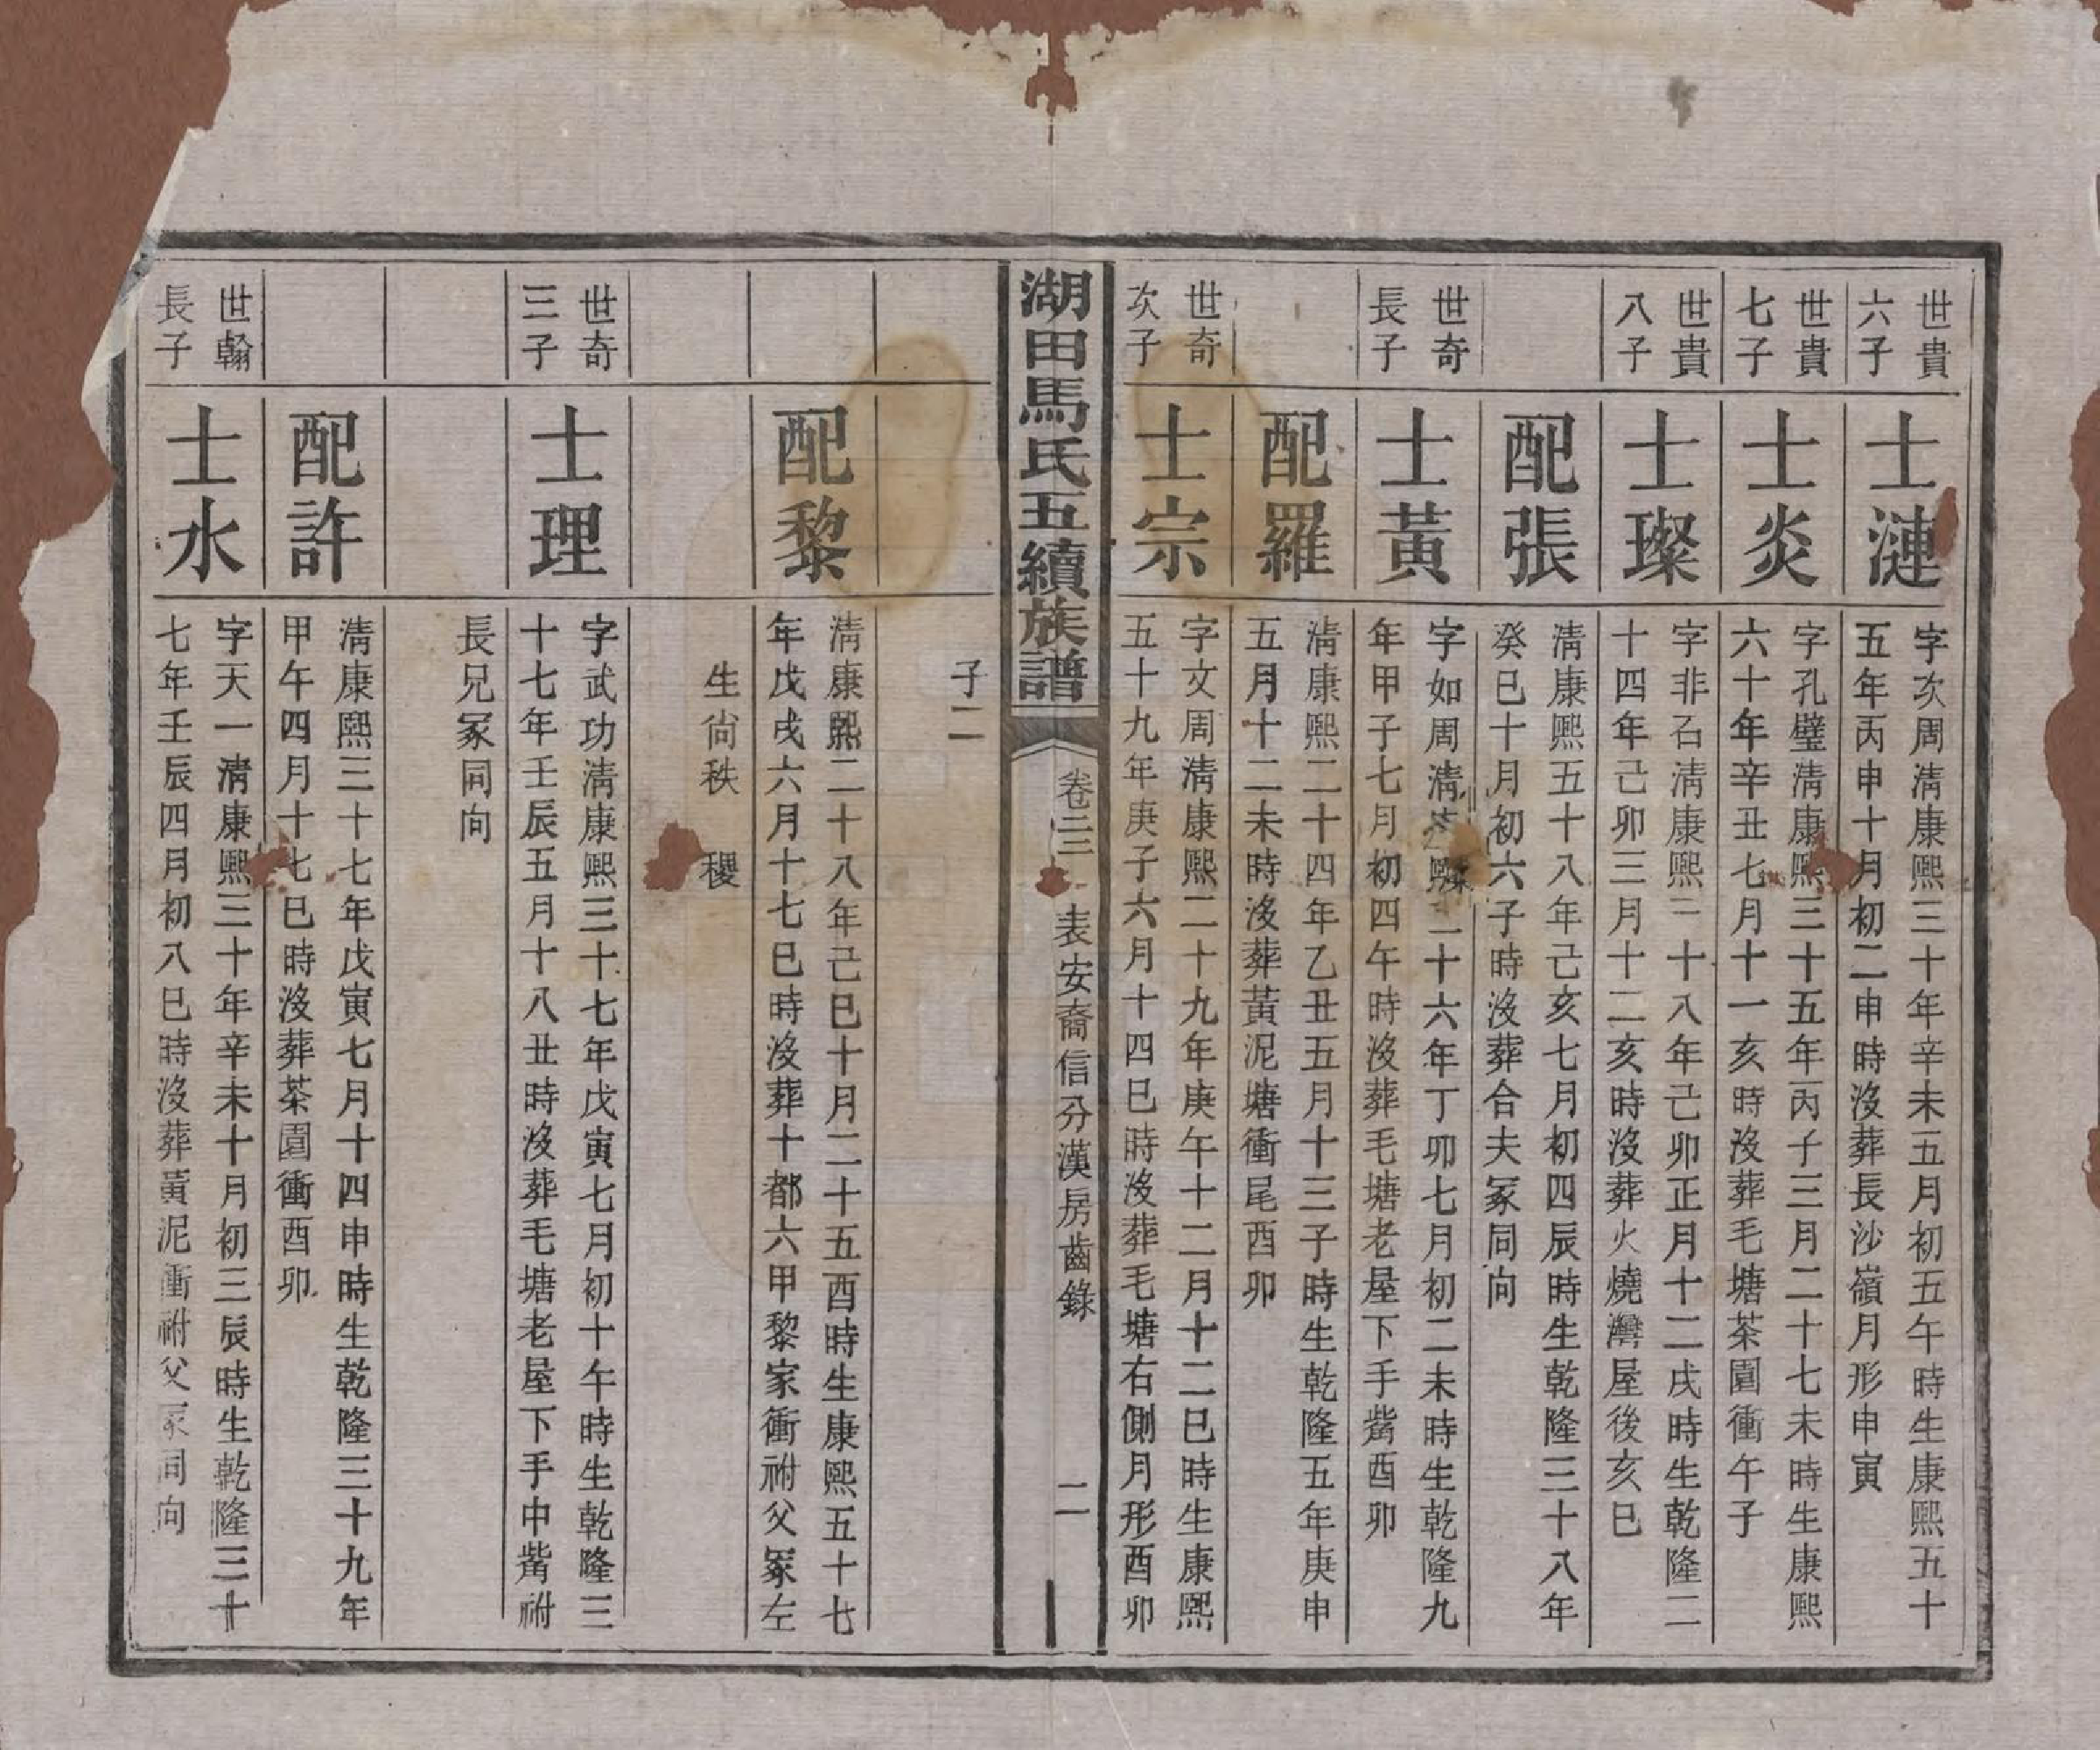 世貴
六子
士漣
字次周淸康熙三十年辛未五月初五午時生康熙五十
五年丙申十月初二申時沒葬長沙嶺月形申寅
世貴
七子
士炎
字孔璧淸康熙三十五年丙子三月二十七未時生康熙
六十年辛丑七月十一亥時沒葬毛塘茶園衝午子
世貴
八子
士璨
字非石淸康熙三十八年己卯正月十二戌時生乾隆二
十四年己卯三月十二亥時沒葬火燒灣屋後亥巳
配張
淸康熙五十八年己亥七月初四辰時生乾隆三十八年
癸巳十月初六子時沒葬合夫冢同向
世奇
長子
士黃
字如周淸熙二十六年丁卯七月初二未時生乾隆九
年甲子七月初四午時沒葬毛塘老屋下手觜酉卯
配羅
淸康熙二十四年乙丑五月十三子時生乾隆五年庚申
五月十二未時沒葬黃泥塘衝尾酉卯
世奇
次子
士宗
字文周淸康熙二十九年庚午十二月十二巳時生康熙
五十九年庚子六月十四巳時沒葬毛塘右側月形酉卯
湖田馬氏五續族譜
卷三
表安裔信分漢房齒錄
二
子二
配黎
淸康熙二十八年己巳十月二十五酉時生康熙五十七
年戊戌六月十七巳時沒葬十都六甲黎家衝祔父冢左
生尙秩 稷
世奇
三子
士理
字武功淸康熙三十七年戊寅七月初十午時生乾隆三
十七年壬辰五月十八丑時沒葬毛塘老屋下手中觜祔
長兄冢同向
配許
淸康熙三十七年戊寅七月十四申時生乾隆三十九年
甲午四月十七巳時沒葬茶園衝酉卯
世翰
長子
士水
字天一淸康熙三十年辛未十月初三辰時生乾隆三十
七年壬辰四月初八巳時沒葬黃泥衝祔父冢同向